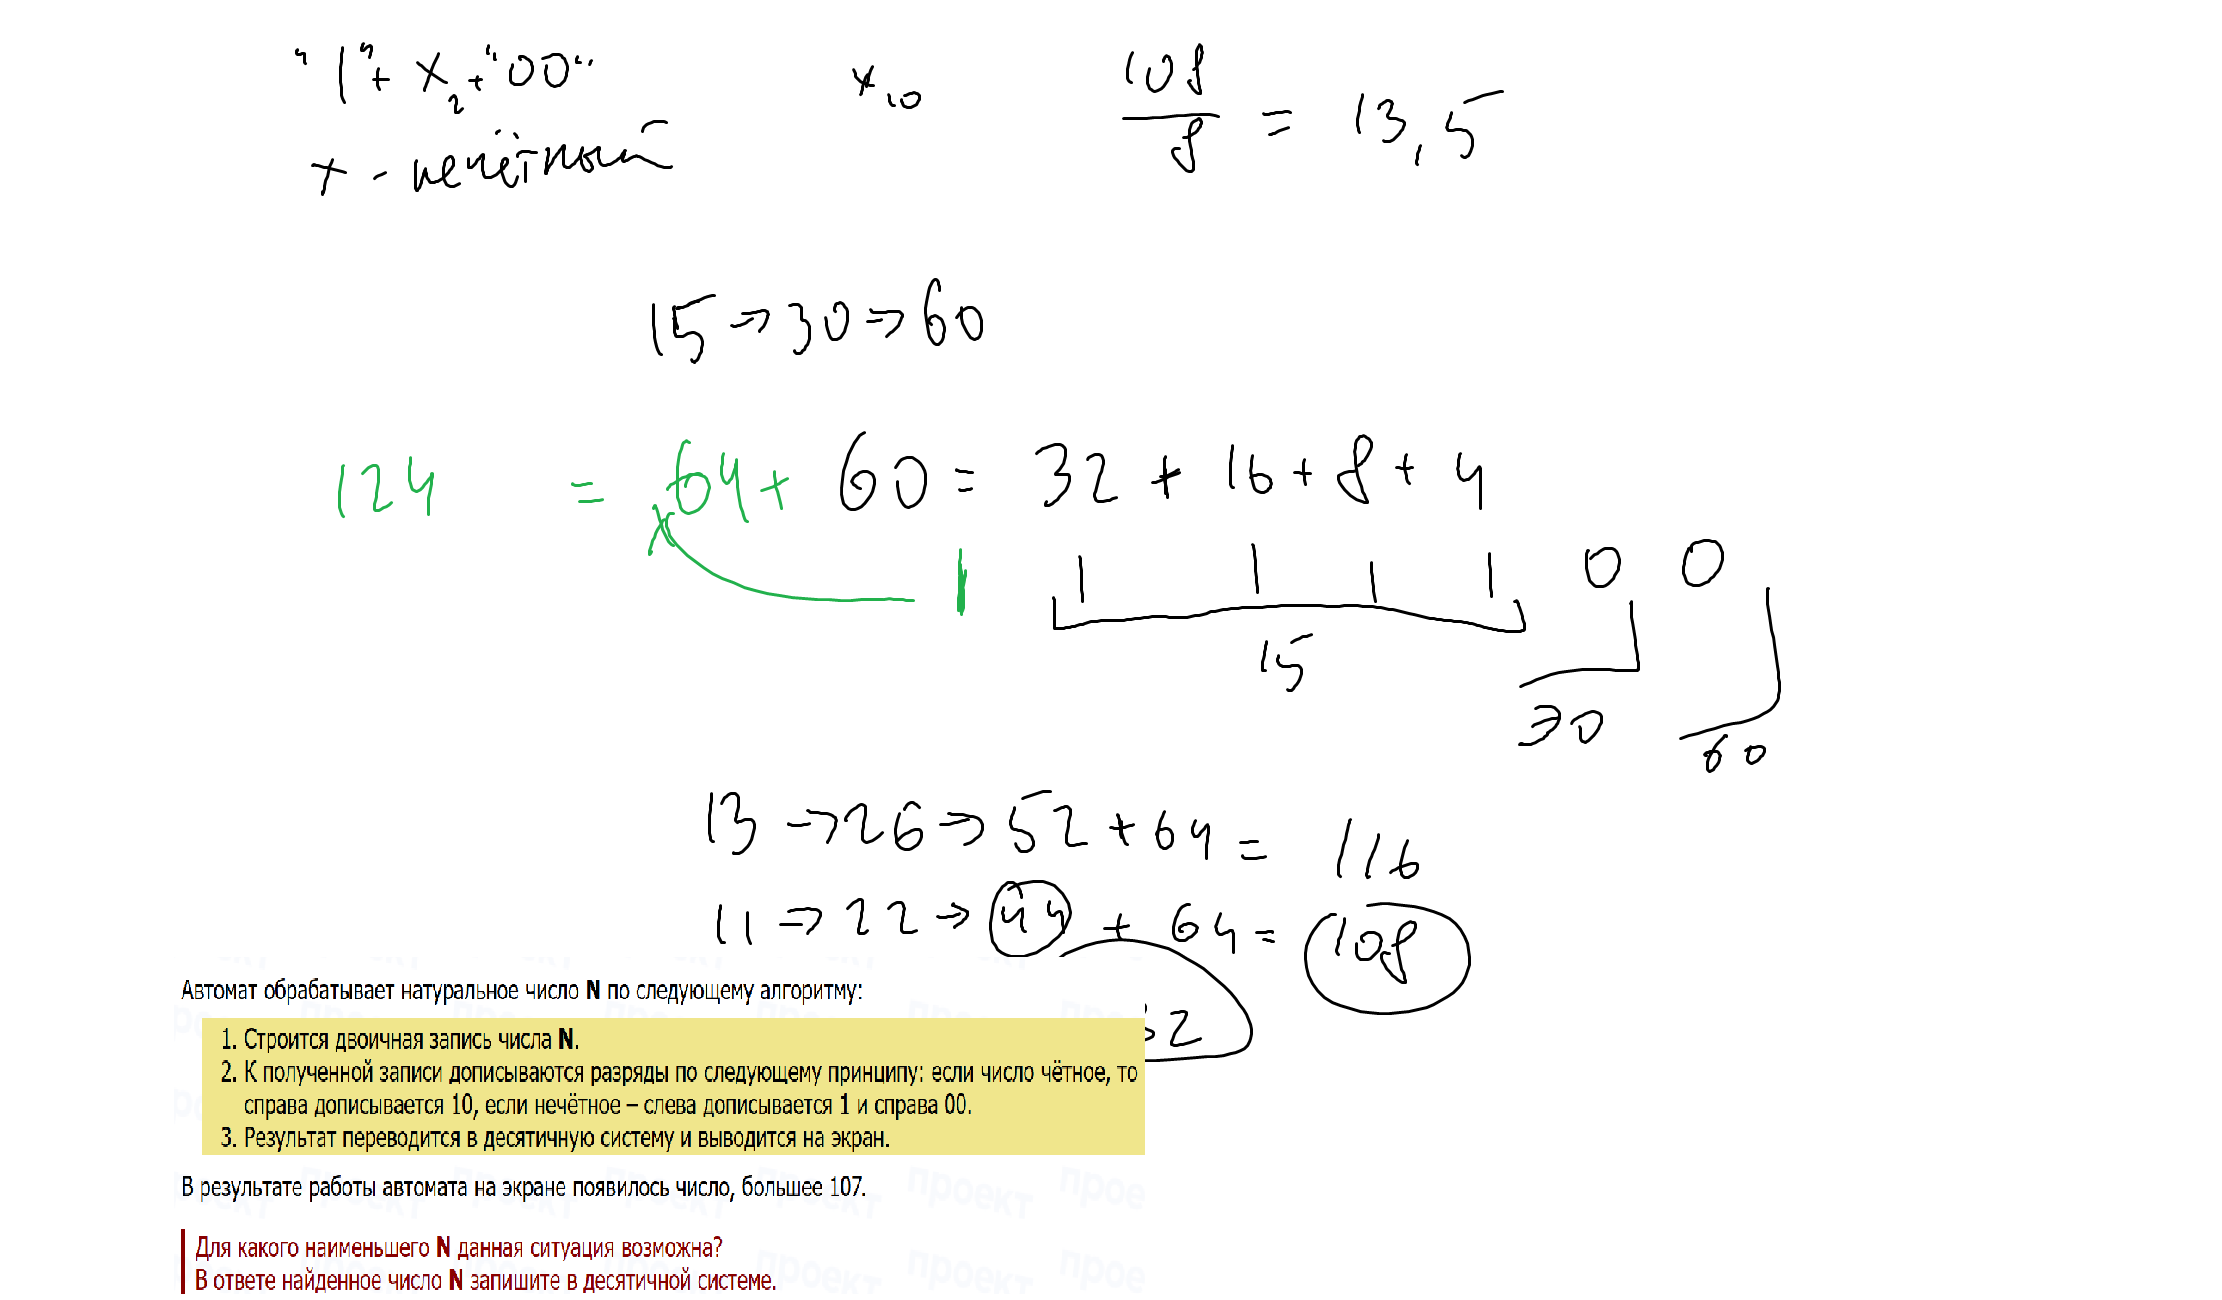 "1" + x₂ + "00"
x₁₀
108/8 = 13,5
x - нечётный
15 → 30 → 60
124 = 64 + 60 = 32 + 16 + 8 + 4
1 1 1 1 1 0 0
15
30
60
13 → 26 → 52 + 64 = 116
11 → 22 → 44 + 64 = 108
32
Автомат обрабатывает натуральное число N по следующему алгоритму:
1. Строится двоичная запись числа N.
2. К полученной записи дописываются разряды по следующему принципу: если число чётное, то
справа дописывается 10, если нечётное – слева дописывается 1 и справа 00.
3. Результат переводится в десятичную систему и выводится на экран.
В результате работы автомата на экране появилось число, большее 107.
Для какого наименьшего N данная ситуация возможна?
В ответе найденное число N запишите в десятичной системе.